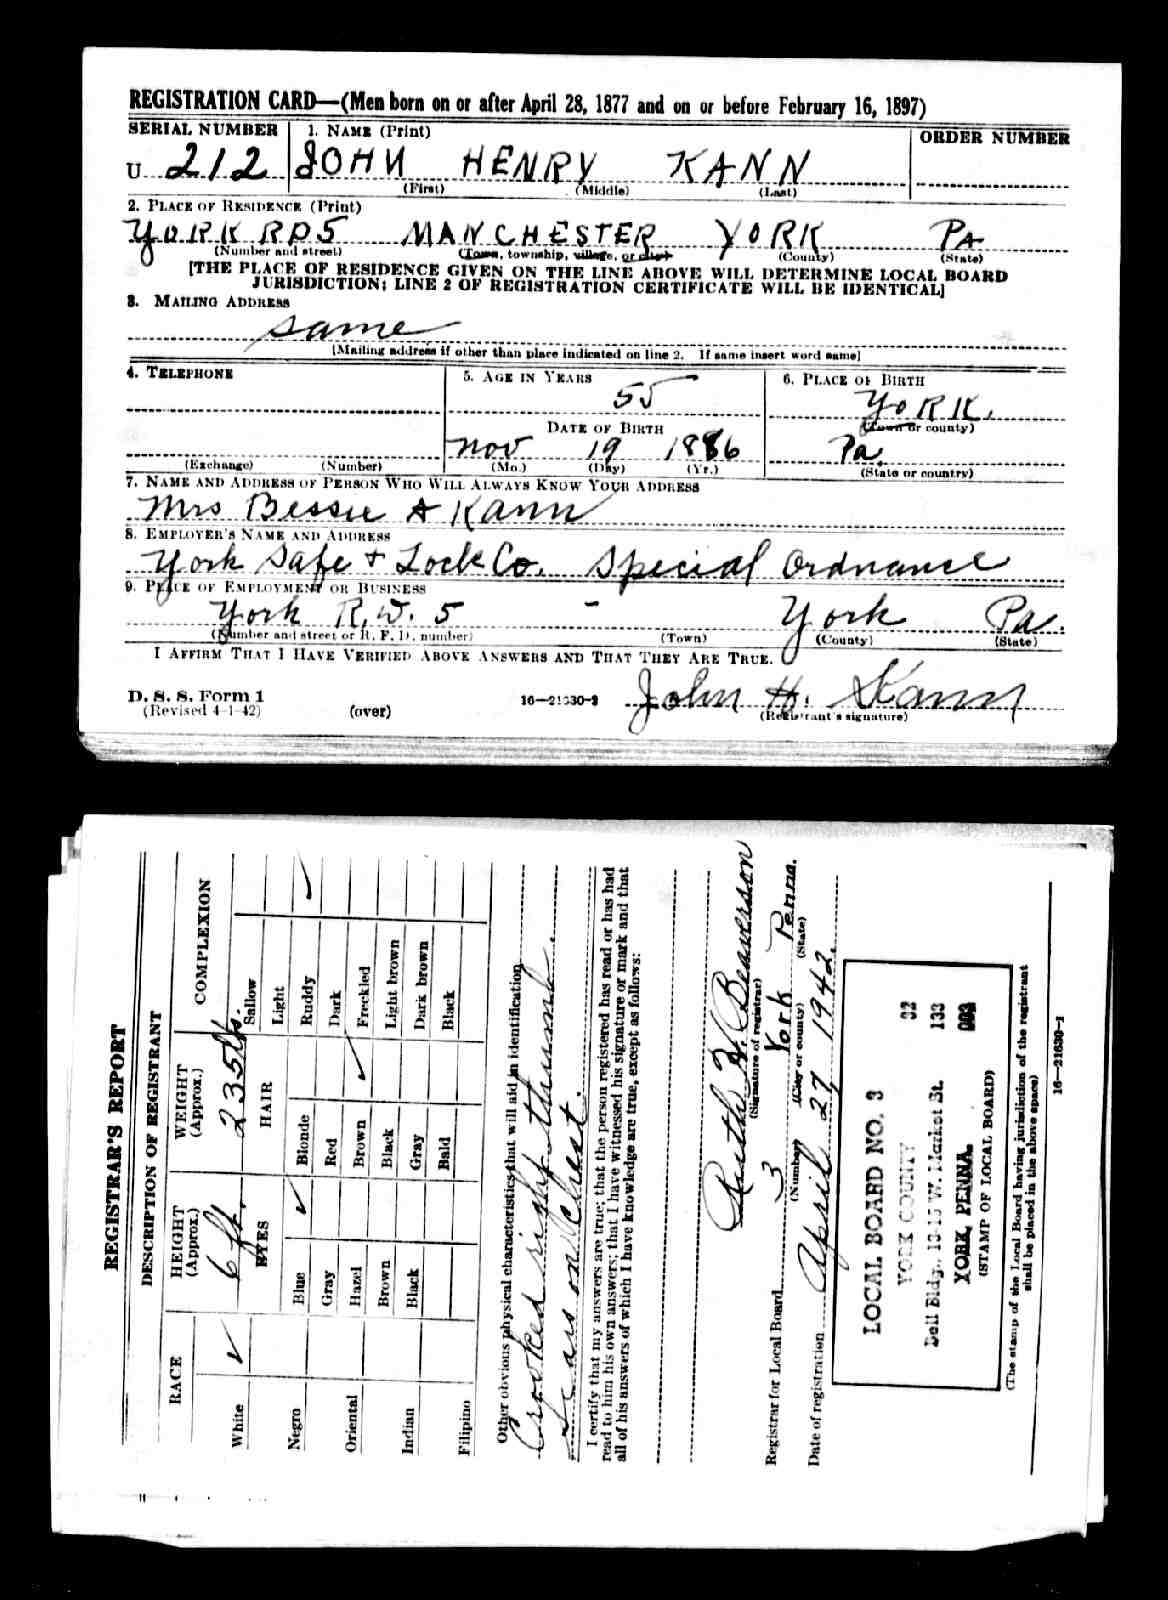 REGISTRATION CARD—(Men born on or after April 28, 1877 and on or before February 16, 1897)
SERIAL NUMBER 1. NAME (Print) ORDER NUMBER
U 212 JOHN HENRY KANN
(First) (Middle) (Last)
2. PLACE OF RESIDENCE (Print)
YORK RD5 MANCHESTER YORK PA
(Number and street) (Town, township, village, or city) (County) (State)
[THE PLACE OF RESIDENCE GIVEN ON THE LINE ABOVE WILL DETERMINE LOCAL BOARD
JURISDICTION; LINE 2 OF REGISTRATION CERTIFICATE WILL BE IDENTICAL]
3. MAILING ADDRESS
same
[Mailing address if other than place indicated on line 2. If same insert word same]
4. TELEPHONE 5. AGE IN YEARS 6. PLACE OF BIRTH
55 YORK.
DATE OF BIRTH (Town or county)
Nov 19 1886 Pa.
(Exchange) (Number) (Mo.) (Day) (Yr.) (State or country)
7. NAME AND ADDRESS OF PERSON WHO WILL ALWAYS KNOW YOUR ADDRESS
Mrs Bessie A Kann
8. EMPLOYER'S NAME AND ADDRESS
York Safe + Lock Co. Special Ordnance
9. PLACE OF EMPLOYMENT OR BUSINESS
York R.D. 5 - York Pa.
(Number and street or R. F. D. number) (Town) (County) (State)
I AFFIRM THAT I HAVE VERIFIED ABOVE ANSWERS AND THAT THEY ARE TRUE.
John H. Kann
D. S. S. Form 1
(Revised 4-1-42) (over) 16—21630-2 (Registrant's signature)
REGISTRAR'S REPORT
DESCRIPTION OF REGISTRANT
RACE HEIGHT (Approx.) WEIGHT (Approx.) COMPLEXION
6 ft. 235 lb.
White ✓ EYES HAIR Sallow
Light
Negro Blue ✓ Blonde Ruddy ✓
Gray Red Dark
Oriental Hazel Brown ✓ Freckled
Brown Black Light brown
Indian Black Gray Dark brown
Bald Black
Filipino
Other obvious physical characteristics that will aid in identification
Crooked right thumb.
Scars on Chest.
I certify that my answers are true; that the person registered has read or has had
read to him his own answers; that I have witnessed his signature or mark and that
all of his answers of which I have knowledge are true, except as follows:
Ruth Beaverson
(Signature of registrar)
Registrar for Local Board 3 York Penna.
(Number) (City or county) (State)
Date of registration April 27, 1942.
LOCAL BOARD NO. 3 32
YORK COUNTY 133
Dell Bldg., 13-15 W. Market St. 003
YORK, PENNA.
(STAMP OF LOCAL BOARD)
(The stamp of the Local Board having jurisdiction of the registrant
shall be placed in the above space)
16—21630-2